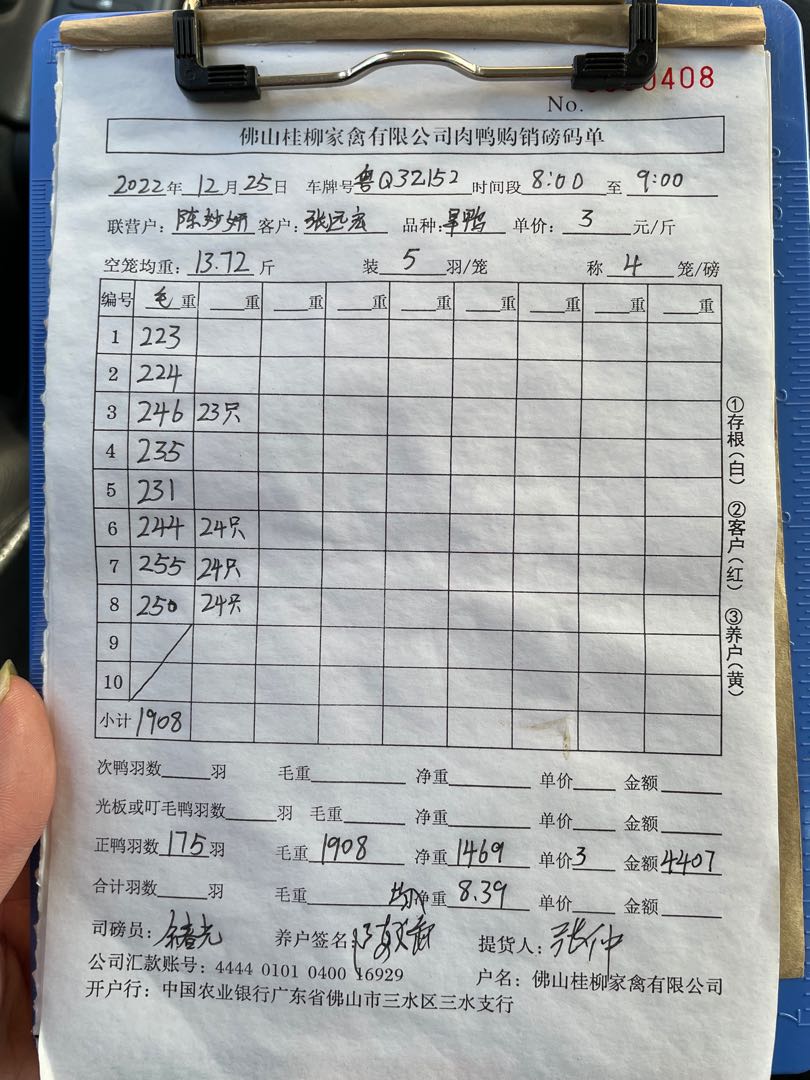 No. 408
佛山桂柳家禽有限公司肉鸭购销磅码单
2022年 12月 25日 车牌号粤Q32152 时间段 8:00 至 9:00
联营户: 陈妙妍 客户: 张远宏 品种: 旱鸭 单价: 3 元/斤
空笼均重: 13.72 斤 装 5 羽/笼 称 4 笼/磅
编号 毛重 重 重 重 重 重 重 重 重
1 223
2 224
3 246 23只
4 235
5 231
6 244 24只
7 255 24只
8 250 24只
9
10
小计 1908
次鸭羽数 羽 毛重 净重 单价 金额
光板或叮毛鸭羽数 羽 毛重 净重 单价 金额
正鸭羽数 175 羽 毛重 1908 净重 1469 单价 3 金额 4407
合计羽数 羽 毛重 均净重 8.39 单价 金额
司磅员: 养户签名: 提货人: 张仲
公司汇款账号: 4444 0101 0400 16929 户名: 佛山桂柳家禽有限公司
开户行: 中国农业银行广东省佛山市三水区三水支行
①存根(白) ②客户(红) ③养户(黄)